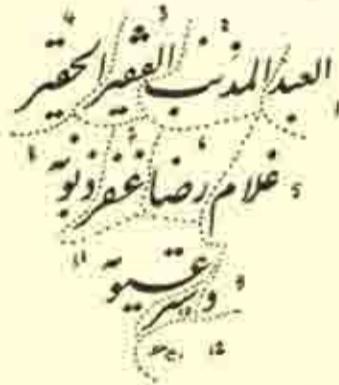 العبد المذنب الفقير الحقير
غلام رضا غفر ذنوبه
و ستر عيوبه